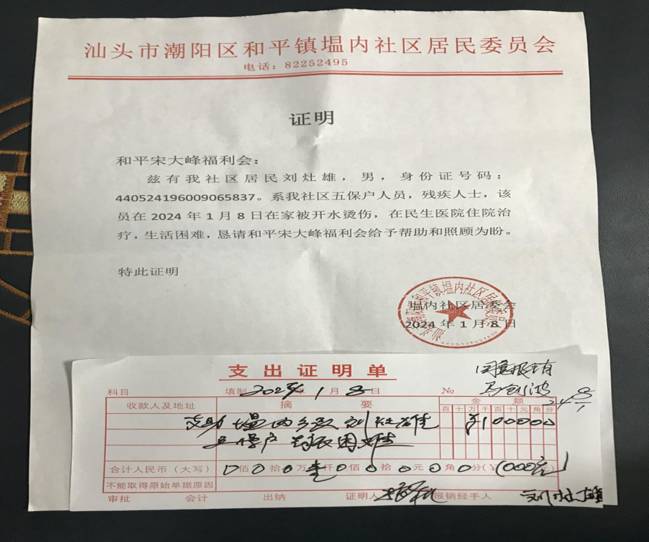 汕头市潮阳区和平镇塭内社区居民委员会
电话：82252495
证明
和平宋大峰福利会：
兹有我社区居民刘灶雄，男，身份证号码：
440524196009065837。系我社区五保户人员，残疾人士，该
员在2024年1月8日在家被开水烫伤，在民生医院住院治
疗，生活困难，恳请和平宋大峰福利会给予帮助和照顾为盼。
特此证明
塭内社区居委会
2024年1月8日
支出证明单
科目 填制 2024年1月8日 No
收款人及地址 摘要 金额
百十万千百十元角分
塭内 刘灶雄 ¥100000
五保户 困难
合计人民币（大写） 0佰0拾0万壹仟0佰0拾0元0角0分（¥ 1000元）
不能取得原始单据原因
审批 会计 出纳 证明人 报销经手人 刘灶雄